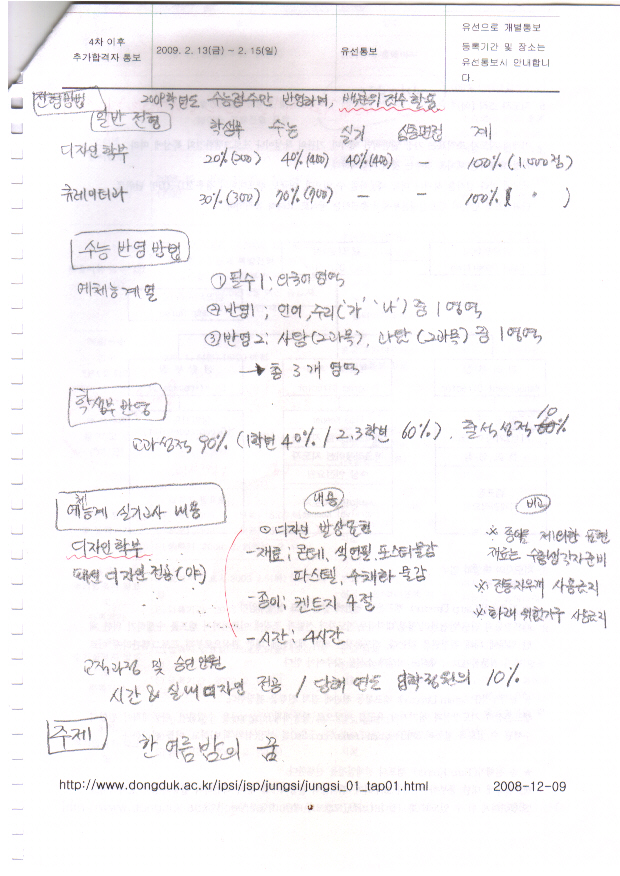 4차 이후
추가합격자 통보
2009. 2. 13(금) ~ 2. 15(일)
유선통보
유선으로 개별통보
등록기간 및 장소는
유선통보시 안내합니
다.
전형방법 2009학년도 수능점수만 반영하며, 백분위 점수 활용
일반 전형
학생부 수능 실기 심층면접 계
디자인학부 20%(200) 40%(400) 40%(400) - 100%(1,000점)
큐레이터과 30%(300) 70%(700) - - 100%( " )
수능 반영 방법
예체능계열 ① 필수1 ; 외국어 영역
② 반영1 ; 언어, 수리('가' '나') 중 1영역
③ 반영2 ; 사탐(2과목), 과탐(2과목) 중 1영역
→ 총 3개 영역
학생부 반영
교과성적 90% (1학년 40% / 2,3학년 60%), 출석성적 10%
예체능계 실기고사 내용
내용
비고
디자인학부
디자인 전공(야)
① 디자인 발상표현
- 재료 ; 콘테, 색연필, 포스터물감
파스텔, 수채화 물감
- 종이 ; 켄트지 4절
- 시간 ; 4시간
※ 종이를 제외한 표현
재료는 수험생각자준비
※ 전동지우개 사용금지
※ 화재 위험기구 사용금지
교직과정 및 승인인원
시각 & 실내디자인 전공 / 당해 연도 입학정원의 10%
주제 한 여름밤의 꿈
http://www.dongduk.ac.kr/ipsi/jsp/jungsi/jungsi_01_tap01.html
2008-12-09